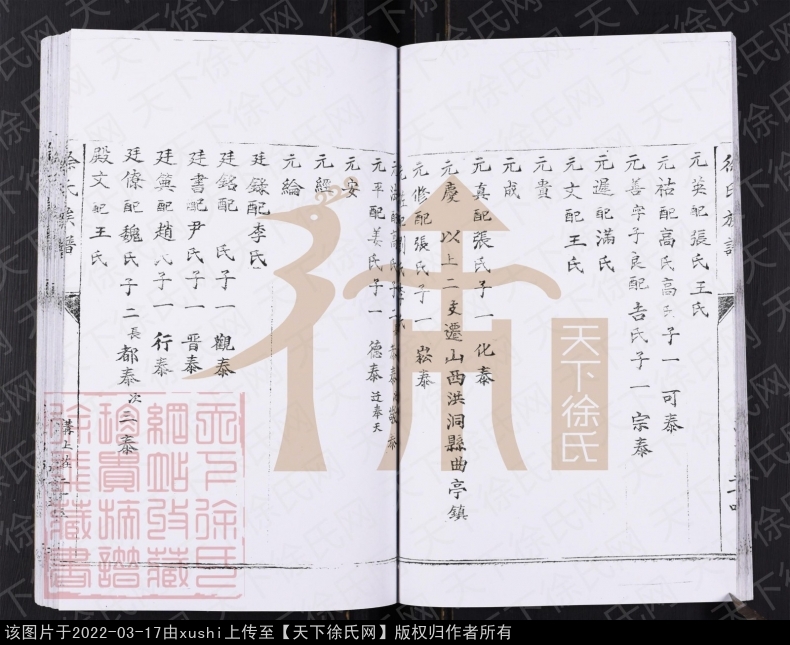 徐氏族譜
元英配張氏王氏
元祜配高氏高氏子一可泰
元善字子良配吉氏子一宗泰
元遲配滿氏
元文配王氏
元貴
元成
元真配張氏子一化泰
元慶 以上二支遷山西洪洞縣曲亭鎮
元修配張氏子一崧泰
元平配姜氏子一德泰迁奉天
元安
元經
元綸
廷錄配李氏
廷銘配 氏子一觀泰
廷書配尹氏子一晋泰
廷簠配趙氏子一行泰
廷僚配魏氏子二長都泰次三泰
殿文配王氏
徐氏族譜
天下徐氏
天下徐氏
網站收藏
珍貴撫譜
徐飛藏書
天下徐氏网
该图片于2022-03-17由xushi上传至【天下徐氏网】版权归作者所有